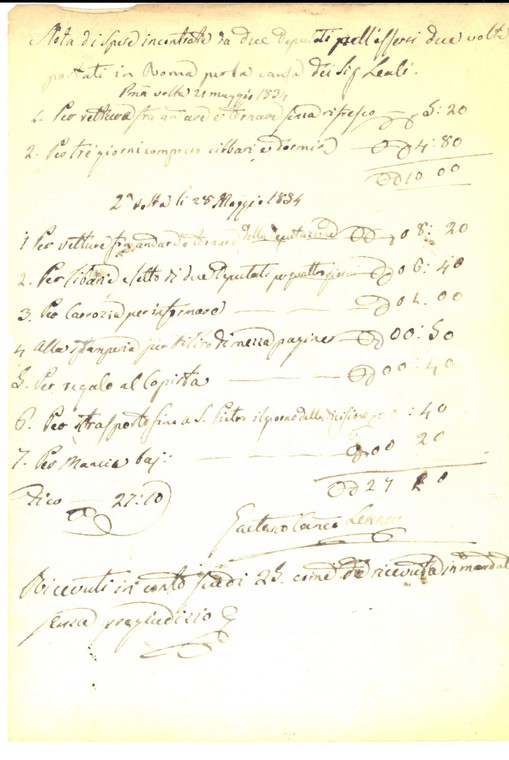 Nota di spese incontrate da due Deputati nell'essersi due volte
portati in Roma per la causa dei Sig Leali.
Pma volta 21 maggio 1834
1. Per vettura fra andare e tornare senza rifresco 5: 20
2. Per tre giorni compreso cibbari e dormire 4: 80
10 00
2a volta li 28 Maggio 1834
1 Per vettura fra andar e tornare della deputazione 08: 20
2. Per Cibarie e letto di due Deputati per quattro giorni 06: 40
3. Per Carrozza per informare 01. 00
4 Alla stamperia per di mezza pagina 00: 50
5. Per regalo al Copista 00: 40
6. Per trasporto fino a S. Pietro il giorno della : 40
7. Per Mancia baj: 00 20
Dico 27: 10
27 10
Gaetano
Ricevuti in conto scudi 25. come da ricevuta in mandat
senza pregiudizio